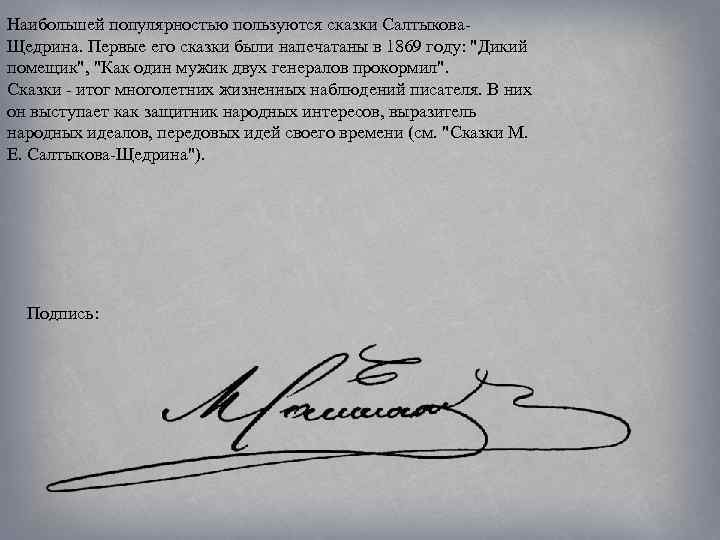 Наибольшей популярностью пользуются сказки Салтыкова-
Щедрина. Первые его сказки были напечатаны в 1869 году: "Дикий
помещик", "Как один мужик двух генералов прокормил".
Сказки - итог многолетних жизненных наблюдений писателя. В них
он выступает как защитник народных интересов, выразитель
народных идеалов, передовых идей своего времени (см. "Сказки М.
Е. Салтыкова-Щедрина").
Подпись:
М Салтыков